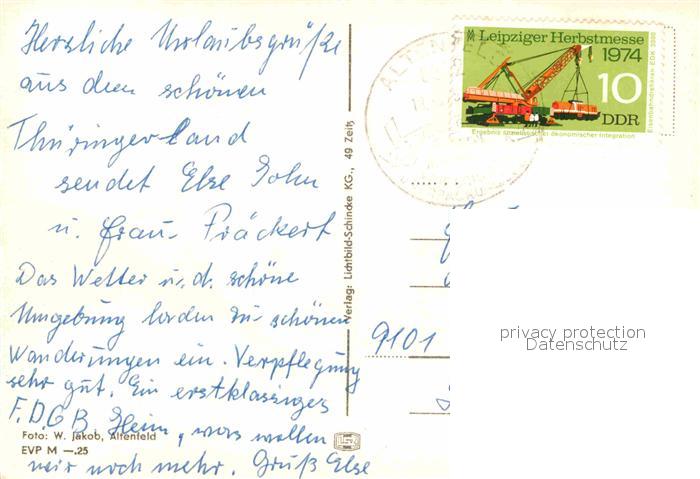 Herzliche Urlaubsgrüße
aus dem schönen
Thüringerland
sendet Else John
u. Frau Präckert
Das Wetter u. d. schöne
Umgebung laden zu schönen
Wanderungen ein. Verpflegung
sehr gut. Ein erstklassiges
F.D.G.B. Heim, was wollen
wir noch mehr. Gruß Else
Foto: W. Jakob, Altenfeld
EVP M —.25
Verlag: Lichtbild-Schincke KG., 49 Zeitz
ALTENFELD
Leipziger Herbstmesse
1974
10
DDR
Eisenbahndrehkran EDK 2000
Ergebnis sozialistischer ökonomischer Integration
9101
privacy protection
Datenschutz